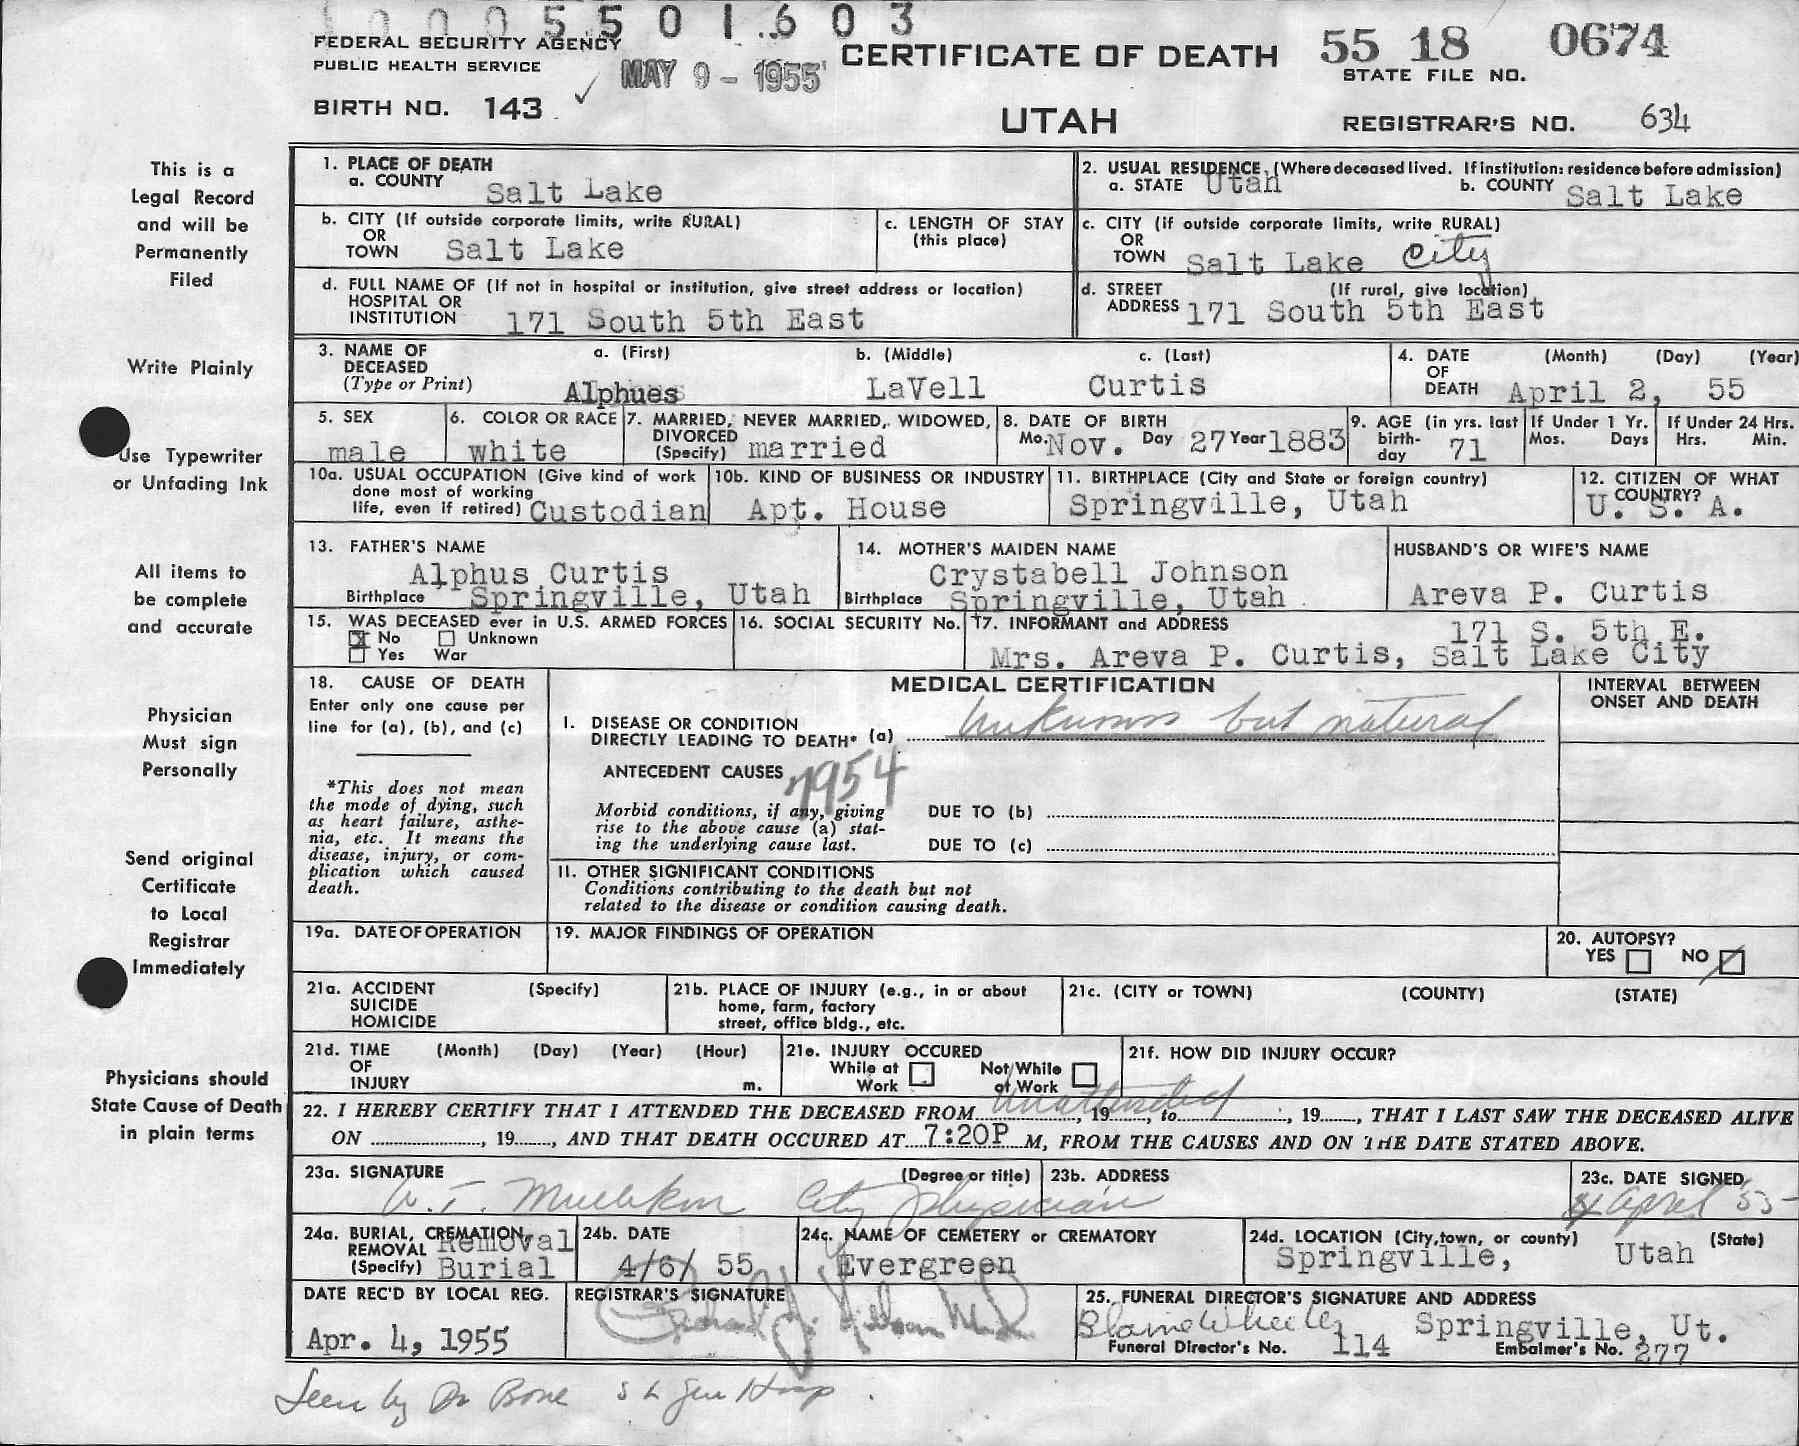 0 0 0 5 5 0 1 6 0 3
FEDERAL SECURITY AGENCY
PUBLIC HEALTH SERVICE
MAY 9 - 1955
CERTIFICATE OF DEATH
55 18 0674
STATE FILE NO.
BIRTH NO. 143
UTAH
REGISTRAR'S NO. 634
This is a
Legal Record
and will be
Permanently
Filed
Write Plainly
Use Typewriter
or Unfading Ink
All items to
be complete
and accurate
Physician
Must sign
Personally
Send original
Certificate
to Local
Registrar
Immediately
Physicians should
State Cause of Death
in plain terms
1. PLACE OF DEATH
a. COUNTY Salt Lake
2. USUAL RESIDENCE (Where deceased lived. If institution: residence before admission)
a. STATE Utah b. COUNTY Salt Lake
b. CITY (If outside corporate limits, write RURAL)
OR
TOWN Salt Lake
c. LENGTH OF STAY
(this place)
c. CITY (if outside corporate limits, write RURAL)
OR
TOWN Salt Lake City
d. FULL NAME OF (If not in hospital or institution, give street address or location)
HOSPITAL OR
INSTITUTION 171 South 5th East
d. STREET (If rural, give location)
ADDRESS 171 South 5th East
3. NAME OF DECEASED (Type or Print)
a. (First) b. (Middle) c. (Last)
Alphues LaVell Curtis
4. DATE OF DEATH (Month) (Day) (Year)
April 2, 55
5. SEX
male
6. COLOR OR RACE
white
7. MARRIED, NEVER MARRIED, WIDOWED,
DIVORCED
(Specify) married
8. DATE OF BIRTH
Mo. Nov. Day 27 Year 1883
9. AGE (in yrs. last
birth-
day 71
If Under 1 Yr.
Mos. Days
If Under 24 Hrs.
Hrs. Min.
10a. USUAL OCCUPATION (Give kind of work
done most of working
life, even if retired) Custodian
10b. KIND OF BUSINESS OR INDUSTRY
Apt. House
11. BIRTHPLACE (City and State or foreign country)
Springville, Utah
12. CITIZEN OF WHAT
COUNTRY?
U. S. A.
13. FATHER'S NAME
Alphus Curtis
Birthplace Springville, Utah
14. MOTHER'S MAIDEN NAME
Crystabell Johnson
Birthplace Springville, Utah
HUSBAND'S OR WIFE'S NAME
Areva P. Curtis
15. WAS DECEASED ever in U.S. ARMED FORCES
X No Unknown
Yes War
16. SOCIAL SECURITY No.
17. INFORMANT and ADDRESS
171 S. 5th E.
Mrs. Areva P. Curtis, Salt Lake City
18. CAUSE OF DEATH
Enter only one cause per
line for (a), (b), and (c)
*This does not mean
the mode of dying, such
as heart failure, asthe-
nia, etc. It means the
disease, injury, or com-
plication which caused
death.
MEDICAL CERTIFICATION
INTERVAL BETWEEN
ONSET AND DEATH
I. DISEASE OR CONDITION
DIRECTLY LEADING TO DEATH* (a) Unknown but natural
ANTECEDENT CAUSES 7954
Morbid conditions, if any, giving
rise to the above cause (a) stat-
ing the underlying cause last.
DUE TO (b)
DUE TO (c)
II. OTHER SIGNIFICANT CONDITIONS
Conditions contributing to the death but not
related to the disease or condition causing death.
19a. DATE OF OPERATION
19. MAJOR FINDINGS OF OPERATION
20. AUTOPSY?
YES NO
21a. ACCIDENT (Specify)
SUICIDE
HOMICIDE
21b. PLACE OF INJURY (e.g., in or about
home, farm, factory
street, office bldg., etc.
21c. (CITY or TOWN) (COUNTY) (STATE)
21d. TIME (Month) (Day) (Year) (Hour)
OF
INJURY m.
21e. INJURY OCCURED
While at Work Not While at Work
21f. HOW DID INJURY OCCUR?
22. I HEREBY CERTIFY THAT I ATTENDED THE DECEASED FROM Unattended, 19, to, 19, THAT I LAST SAW THE DECEASED ALIVE
ON, 19, AND THAT DEATH OCCURED AT 7:20P M, FROM THE CAUSES AND ON THE DATE STATED ABOVE.
23a. SIGNATURE (Degree or title)
City Physician
23b. ADDRESS
23c. DATE SIGNED
April 55
24a. BURIAL, CREMATION,
REMOVAL
(Specify)
Removal
Burial
24b. DATE
4/6/ 55
24c. NAME OF CEMETERY or CREMATORY
Evergreen
24d. LOCATION (City, town, or county) (State)
Springville, Utah
DATE REC'D BY LOCAL REG.
Apr. 4, 1955
REGISTRAR'S SIGNATURE
25. FUNERAL DIRECTOR'S SIGNATURE AND ADDRESS
Blaine Wheeler Springville, Ut.
Funeral Director's No. 114 Embalmer's No. 277
Seen by Dr Bone S L Gen Hosp.